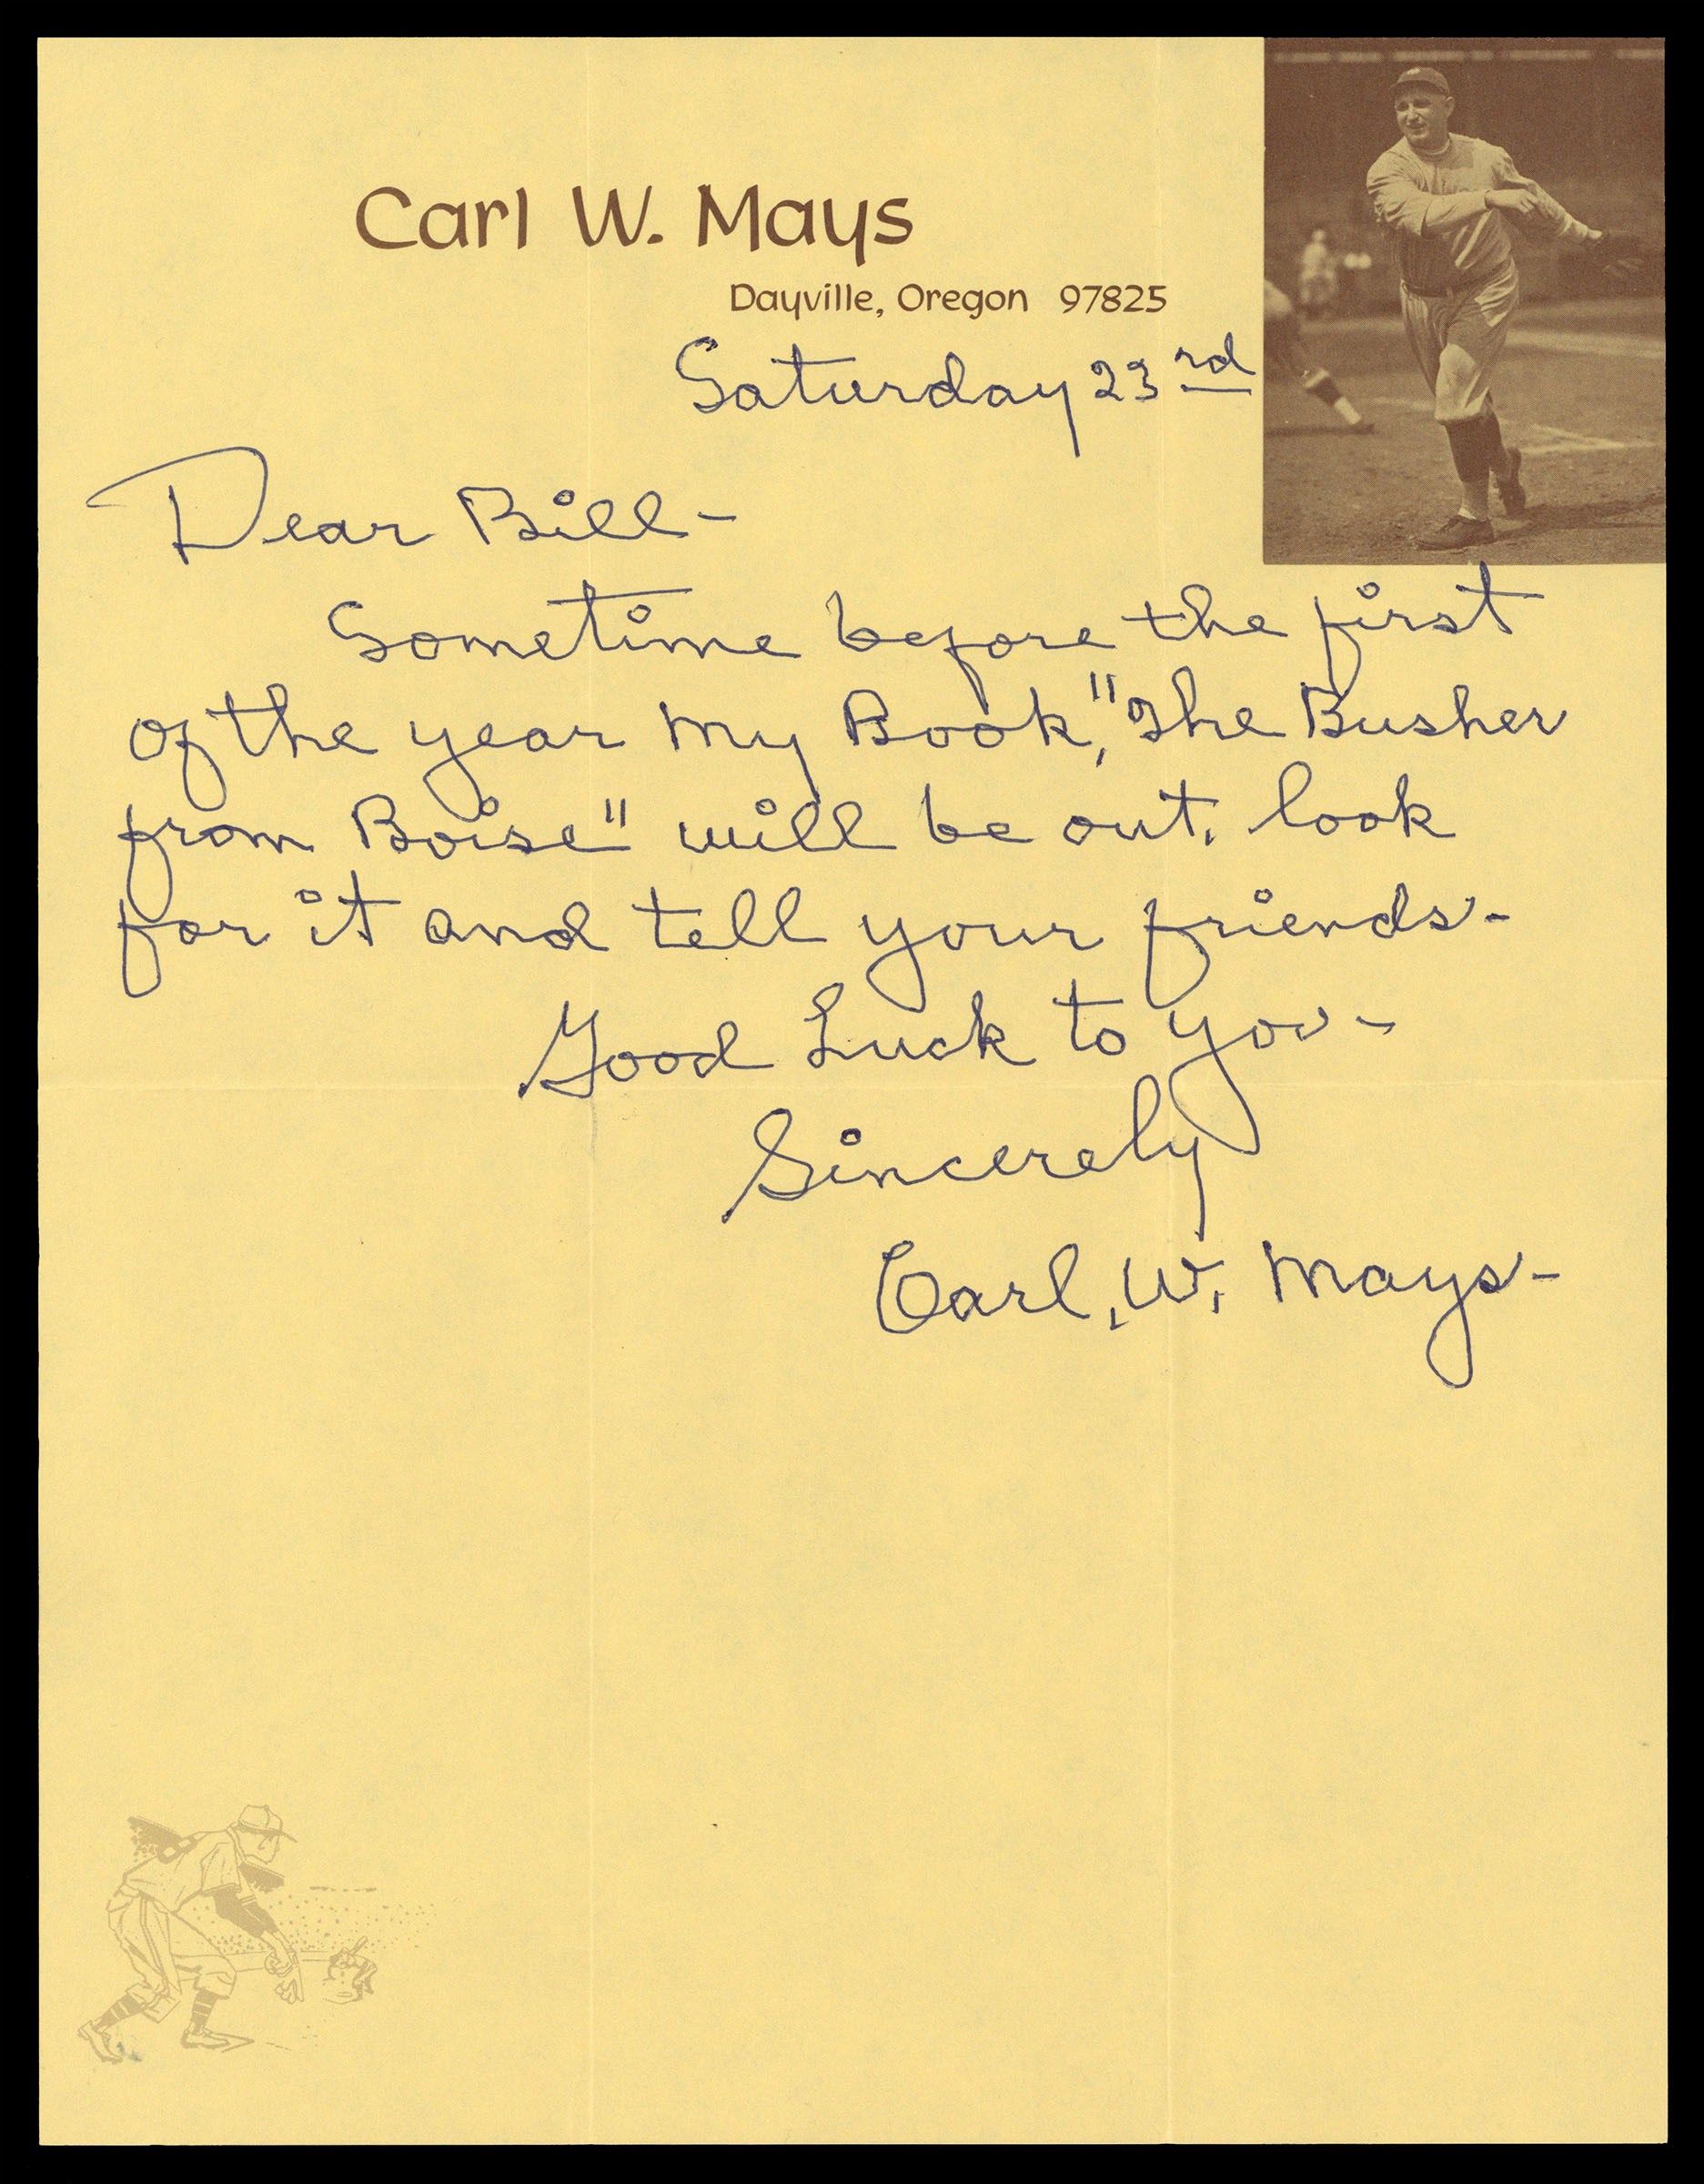 Carl W. Mays
Dayville, Oregon 97825
Saturday 23rd
Dear Bill-
Sometime before the first
of the year my Book, "The Busher
from Boise" will be out. look
for it and tell your friends-
Good Luck to you-
Sincerely
Carl, W, Mays-